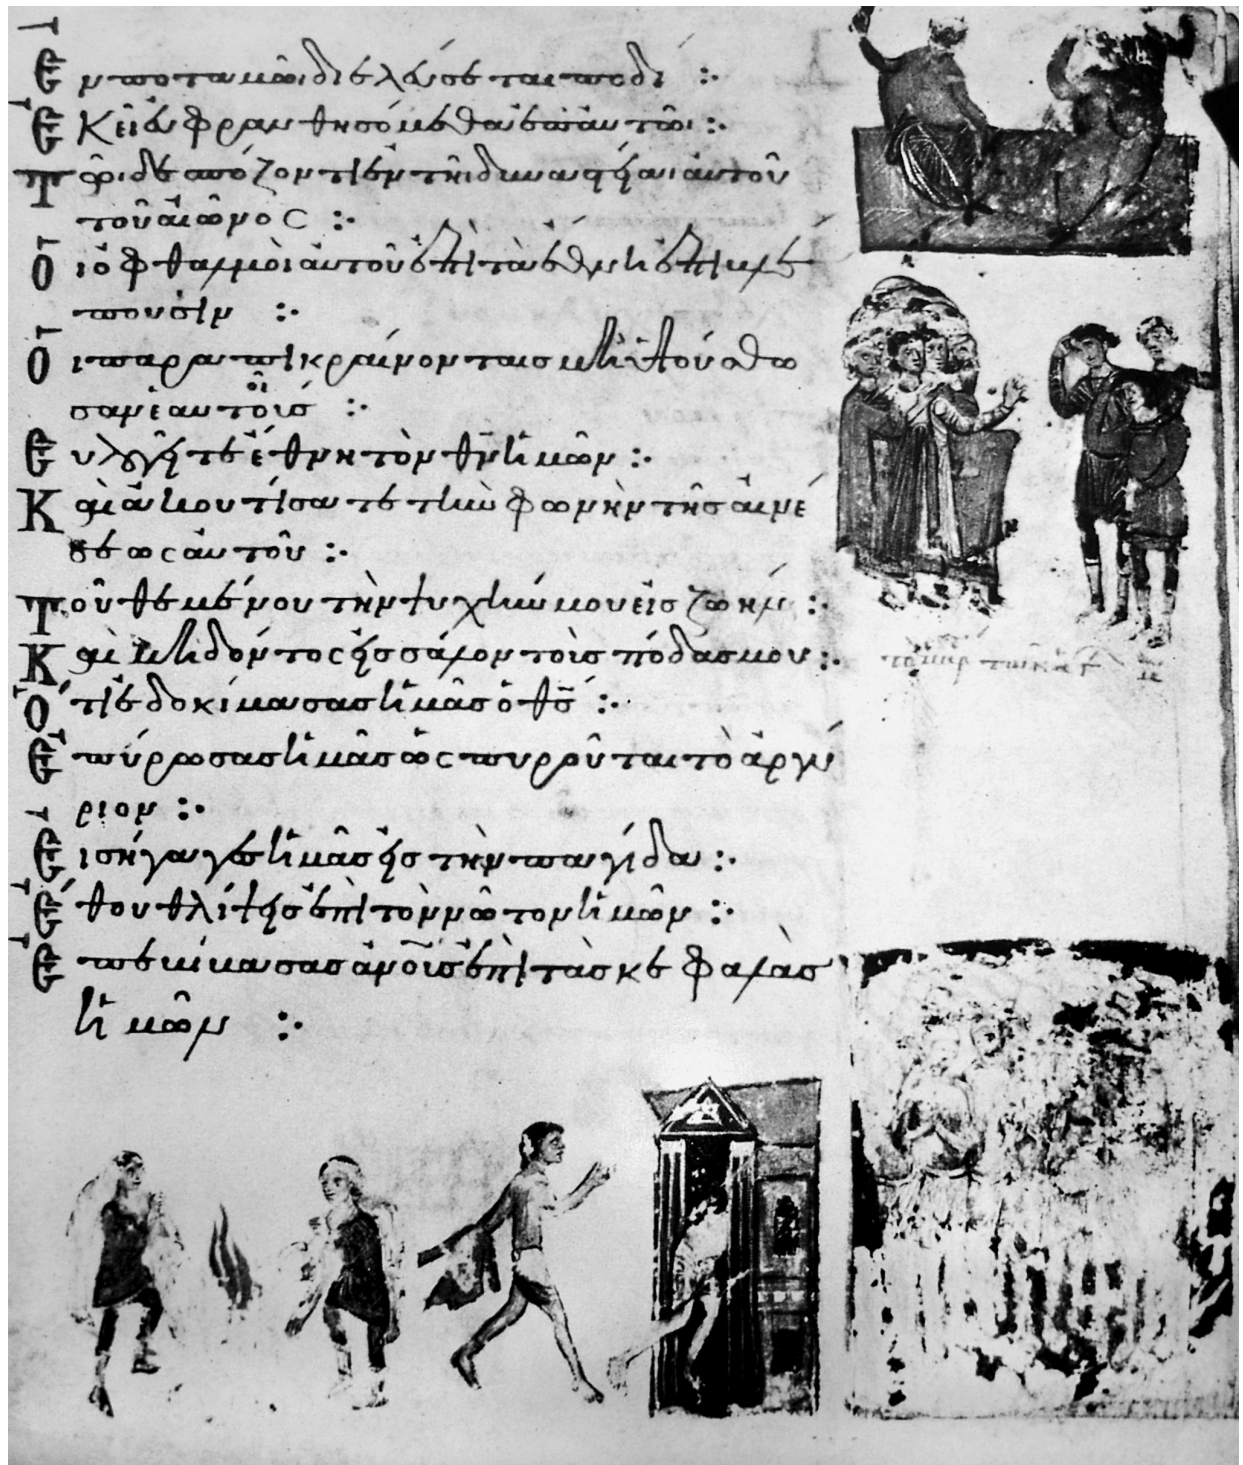 Ἐν ποταμῶι διελεύσεται ποδί :·
Ἐκεῖ εὐφρανθησόμεθα ἐπαυτῶι :·
Τῶι δεσπόζοντι ἐν τῆι δυναστείαι αὐτοῦ
τοῦ αἰῶνος :·
Οἱ ὀφθαλμοὶ αὐτοῦ ἐπὶ τὰ ἔθνη ἐπιβλέ
πουσιν :·
Οἱ παραπικραίνοντες μὴ ὑψούσθω
σαν ἑαυτοῖς :·
Εὐλογεῖτε ἔθνη τὸν θν ἡμῶν :·
Καὶ ἀκουτίσατε τὴν φωνὴν τῆς αἰνέ
σεως αὐτοῦ :·
Τοῦ θεμένου τὴν ψυχήν μου εἰς ζωήν :·
Καὶ μὴ δόντος εἰς σάλον τοὺς πόδας μου :·
Ὅτι ἐδοκίμασας ἡμᾶς ὁ θς :·
Ἐπύρωσας ἡμᾶς ὡς πυροῦται τὸ ἀργύ
ριον :·
Εἰσήγαγες ἡμᾶς εἰς τὴν παγίδα :·
Ἔθου θλίψεις ἐπὶ τὸν νῶτον ἡμῶν :·
Ἐπεβίβασας ἀνους ἐπὶ τὰς κεφαλὰς
ἡμῶν :·